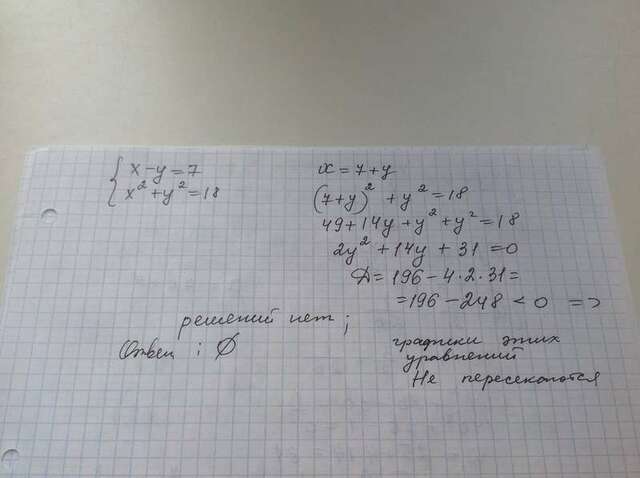 { x - y = 7
x² + y² = 18
x = 7 + y
(7+y)² + y² = 18
49 + 14y + y² + y² = 18
2y² + 14y + 31 = 0
Д = 196 - 4·2·31 =
= 196 - 248 < 0 =>
решений нет;
Ответ: Ø
графики этих
уравнений
Не пересекаются